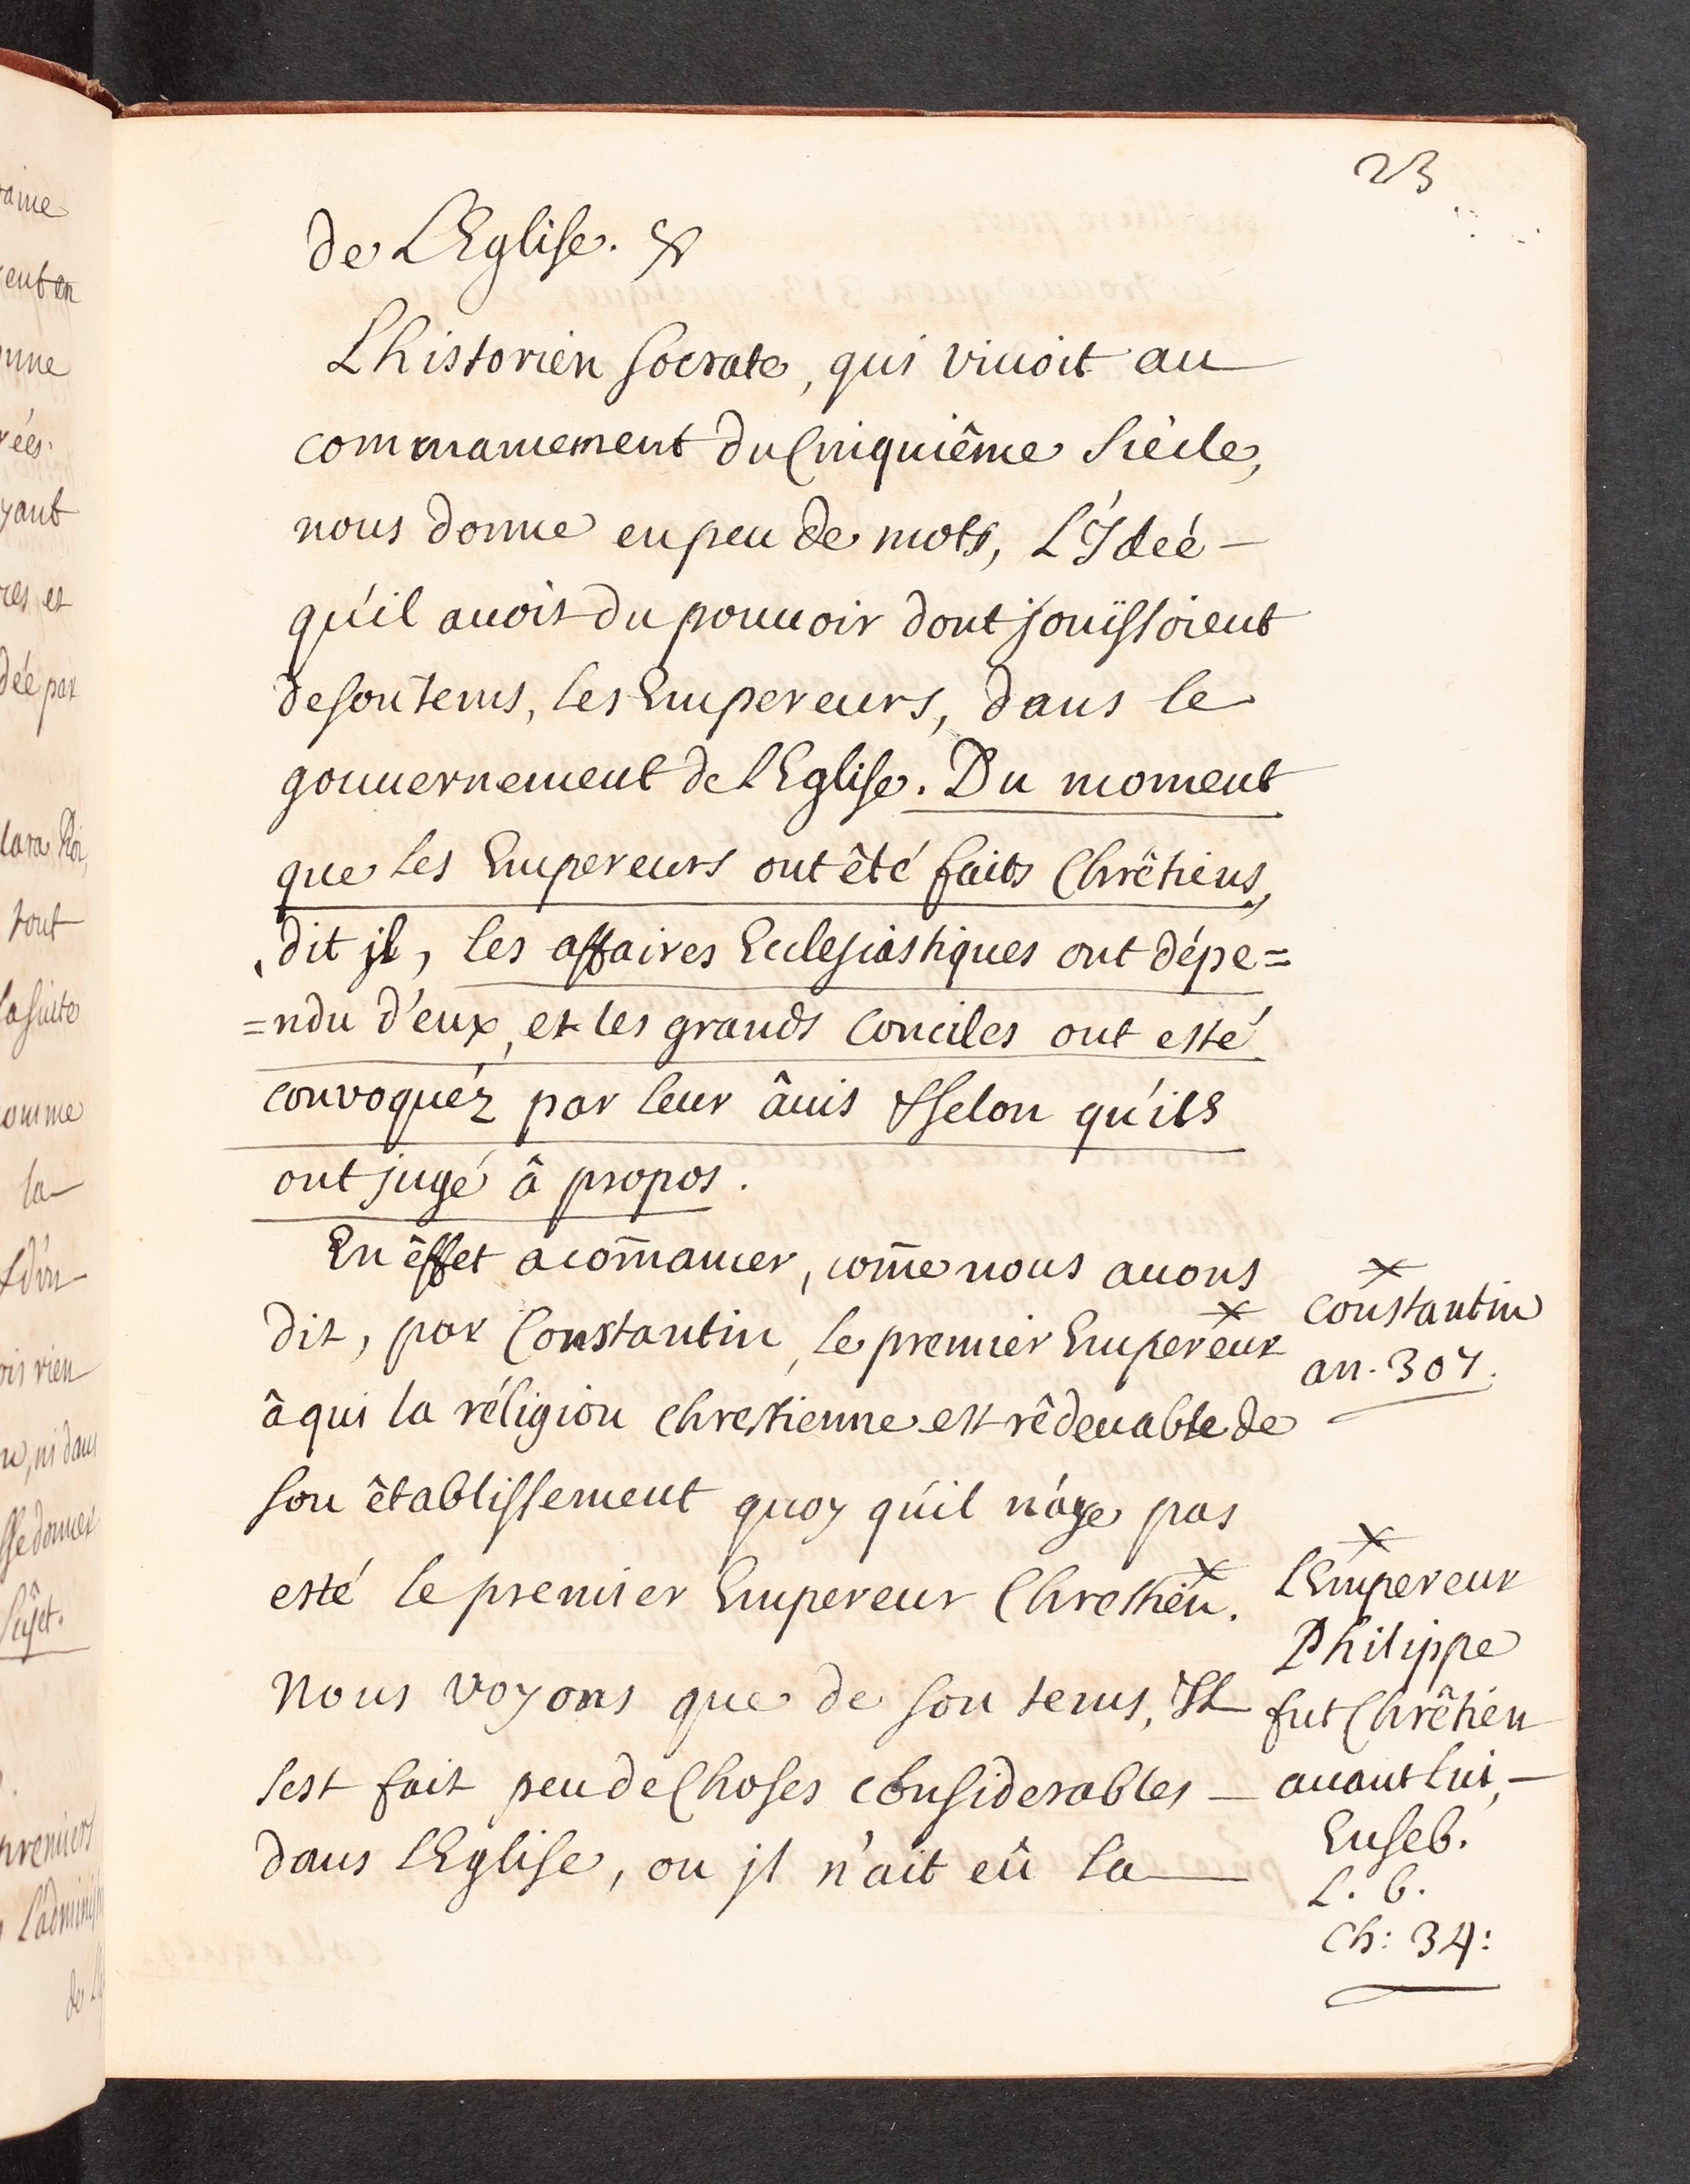 23
de LEglise. &
Lhistorien Socrate, qui viuoit au
commancement du Cinquiême Siécle,
nous donne en peu de mots, L'Ydeé
qu'il auoit du pouuoir dont joüissoient
de son tems, les Empereurs, dans le
gouuernement de LEglise. Du moment
que les Empereurs ont êté faits Chrêtiens,
dit jl, les affaires Ecclesiastiques ont dépe=
=ndu d'eux, et les grands Conciles ont esté
convoquéz par leur âuis & selon qu'ils
ont jugé â propos.
En êffet a com̄ancer, com̄e nous auons
dit, par Constantin, le premier Empereur
â qui la réligion chrestienne est rêdeuable de
son êtablissement quoy qu'il n'aye pas
esté le premier Empereur Chrestien.
Nous voyons que de son tems, Jl
s'est fait peu de Choses considerables
dans lEglise, ou jl n'ait eû la
Constantin
an. 307.
lEmpereur
Philippe
fut Chrêtien
auant lui,
Euseb.
L. 6.
Ch: 34: